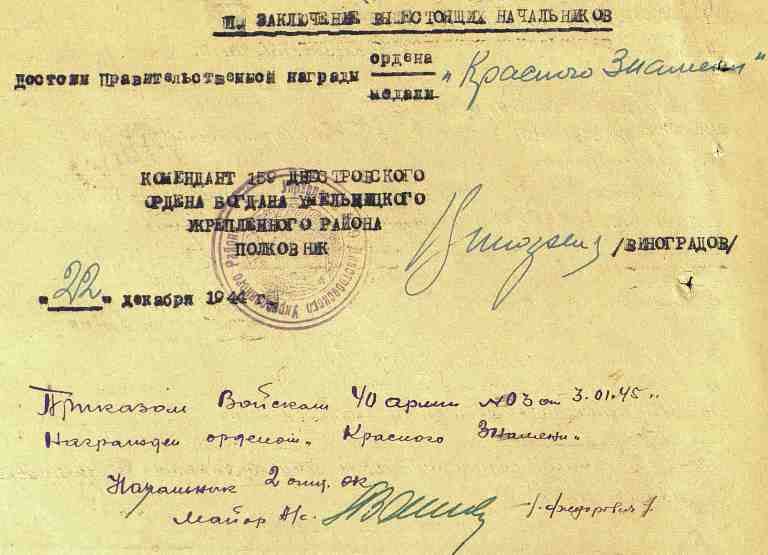 III. ЗАКЛЮЧЕНИЕ ВЫШЕСТОЯЩИХ НАЧАЛЬНИКОВ
достоин Правительственной награды ордена "Красного Знамени"
медали
КОМЕНДАНТ 159 ДНЕСТРОВСКОГО
ОРДЕНА БОГДАНА ХМЕЛЬНИЦКОГО
УКРЕПЛЕННОГО РАЙОНА
ПОЛКОВНИК /ВИНОГРАДОВ/
"22" декабря 1944
Приказом Войскам 40 армии №03 от 3.01.45"
Награжден орденом "Красного Знамени"
Начальник 2 отд. ок
Майор А/с. /Федорович/